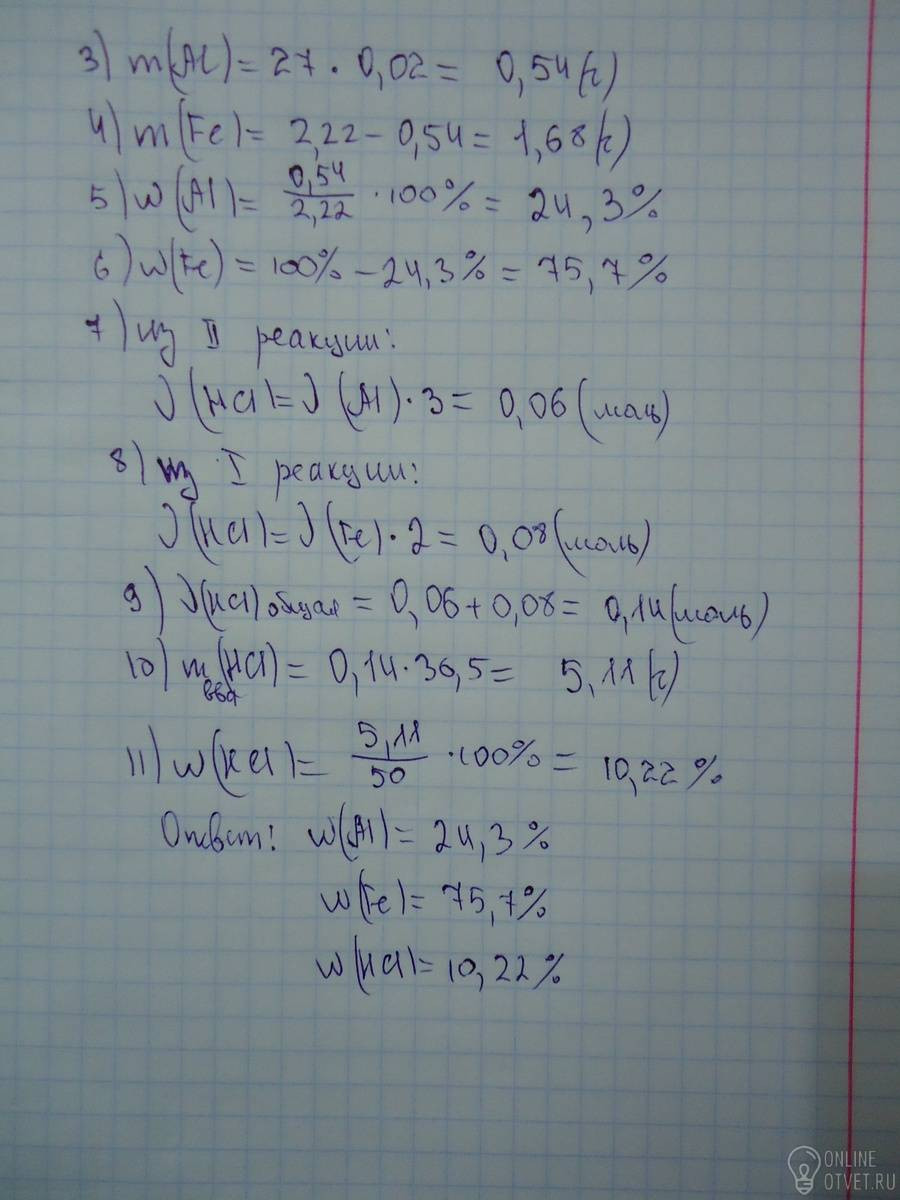 3) m(Al) = 27 · 0,02 = 0,54 (г)
4) m(Fe) = 2,22 – 0,54 = 1,68 (г)
5) w(Al) = 0,54/2,22 · 100% = 24,3%
6) w(Fe) = 100% – 24,3% = 75,7%
7) из II реакции:
ν(HCl) = ν(Al) · 3 = 0,06 (моль)
8) из I реакции:
ν(HCl) = ν(Fe) · 2 = 0,08 (моль)
9) ν(HCl) общая = 0,06 + 0,08 = 0,14 (моль)
10) m(HCl) = 0,14 · 36,5 = 5,11 (г)
вва
11) w(HCl) = 5,11/50 · 100% = 10,22%
Ответ: w(Al) = 24,3%
w(Fe) = 75,7%
w(HCl) = 10,22%
ONLINE
OTVET.RU